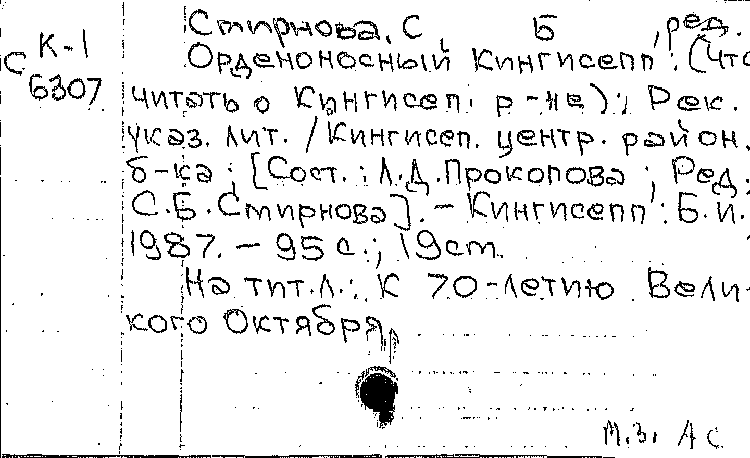 Смирнова, С. Б., ред.
К-1
С
6307
Орденоносный Кингисепп: (Что
читать о Кингисеп. р-не): Рек.
указ. лит. / Кингисеп. центр. район.
б-ка; [Сост.: Л.Д.Прокопова; Ред.
С.Б.Смирнова]. – Кингисепп: Б.и.
1987. – 95 с.; 19 cm.
На тит.л.: К 70-летию Вели-
кого Октября
М.З. АС